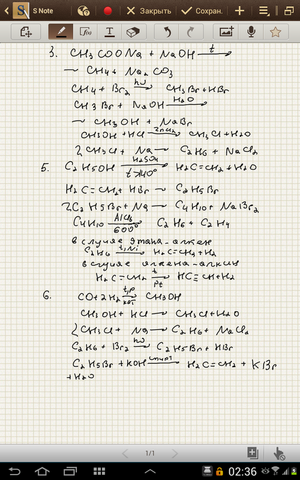 S Note
Закрыть
Сохран.
3. CH3COONa + NaOH →t
~ CH4 + Na2CO3
CH4 + Br2 →hν CH3Br + HBr
CH3Br + NaOH →H2O
~ CH3OH + NaBr
CH3OH + HCl →ZnCl2 CH3Cl + H2O
2CH3Cl + Na → C2H6 + NaCl2
5. C2H5OH →H2SO4 t>140° H2C=CH2 + H2O
H2C=CH2 + HBr → C2H5Br
2C2H5Br + Na → C4H10 + NaBr2
C4H10 →AlCl3 600° C2H6 + C2H4
в случае этана-алкен
C2H6 →t,Ni H2C=CH2 + H2
в случае алкена-алкин
H2C=CH2 →t Pt HC≡CH + H2
6. CO + 2H2 →t,p кат CH3OH
CH3OH + HCl → CH3Cl + H2O
2CH3Cl + Na → C2H6 + NaCl2
C2H6 + Br2 →hν C2H5Br + HBr
C2H5Br + KOH →спирт H2C=CH2 + KBr
+ H2O
1/1
02:36